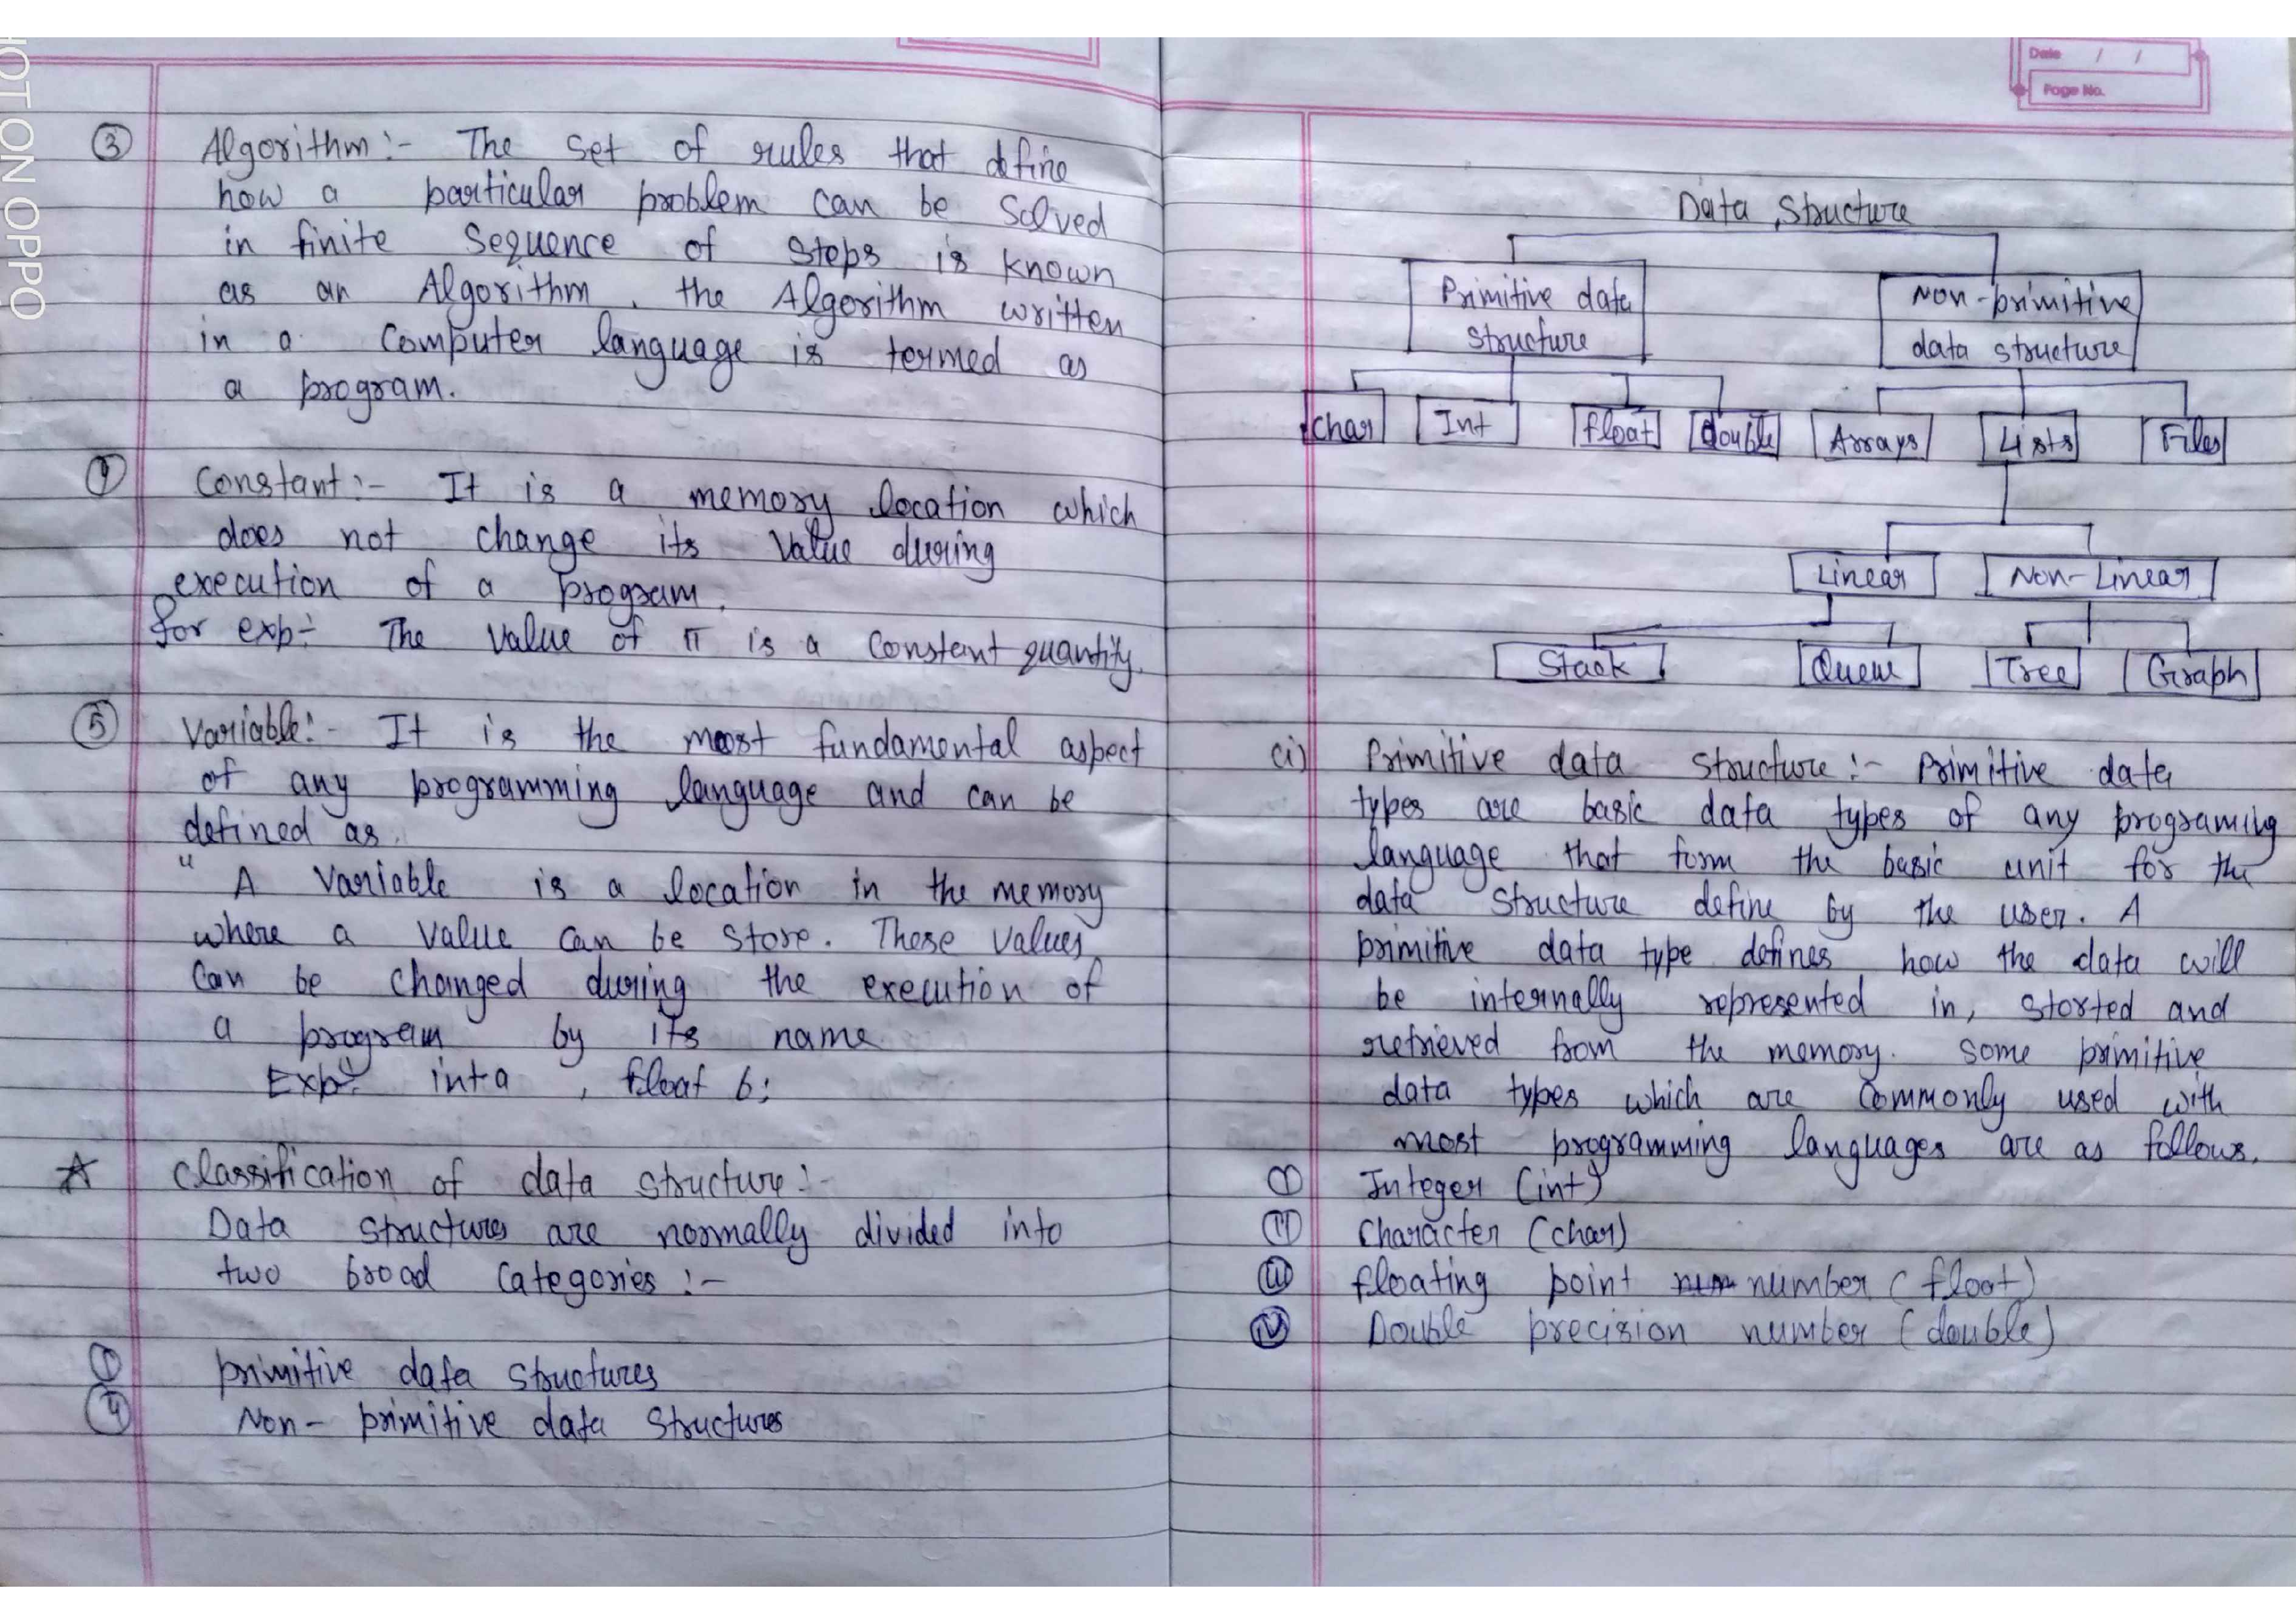 SHOT ON OPPO
③ Algorithm :- The set of rules that define
how a particular problem can be solved
in finite sequence of steps is known
as an Algorithm. the Algorithm written
in a computer language is termed as
a program.
④ Constant :- It is a memory location which
does not change its value during
execution of a program.
for exp:- The value of π is a constant quantity.
⑤ Variable:- It is the most fundamental aspect
of any programming language and can be
defined as.
" A variable is a location in the memory
where a value can be store. These values
can be changed during the execution of
a program by its name
Exp:- int a , float b;
☆ Classification of data structure :-
Data structures are normally divided into
two broad categories :-
① primitive data structures
② Non- primitive data structures
Date / /
Page No.
Data Structure
Primitive data structure
Non-primitive data structure
char Int float double Arrays Lists Files
Linear Non-Linear
Stack Queue Tree Graph
(i) Primitive data structure :- Primitive data
types are basic data types of any programing
language that form the basic unit for the
data structure define by the user. A
primitive data type defines how the data will
be internally represented in, storted and
retrieved from the memory. Some primitive
data types which are commonly used with
most programming languages are as follows.
(I) Integer (int)
(II) Character (char)
(III) floating point number (float)
(IV) Double precision number (double)